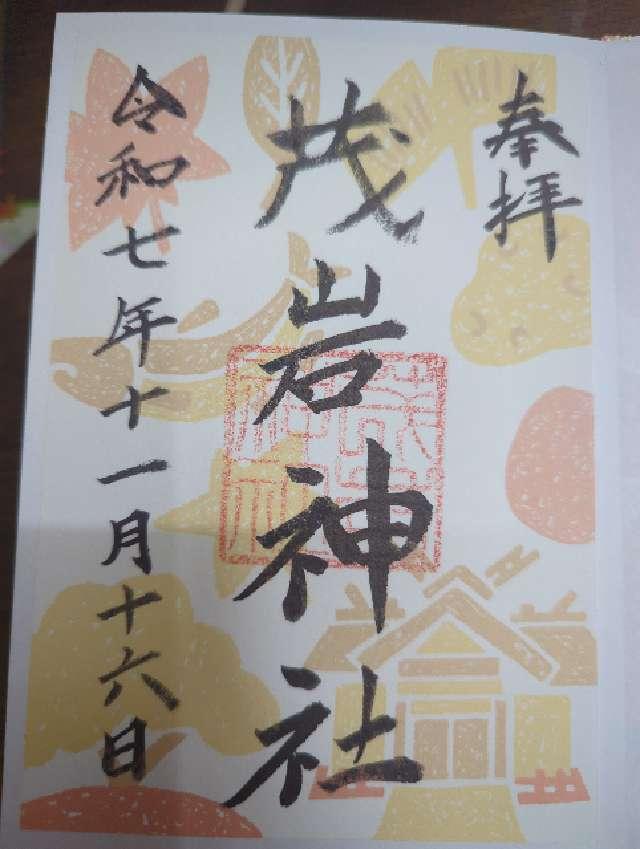 奉拝
茂岩神社
令和七年十一月十六日